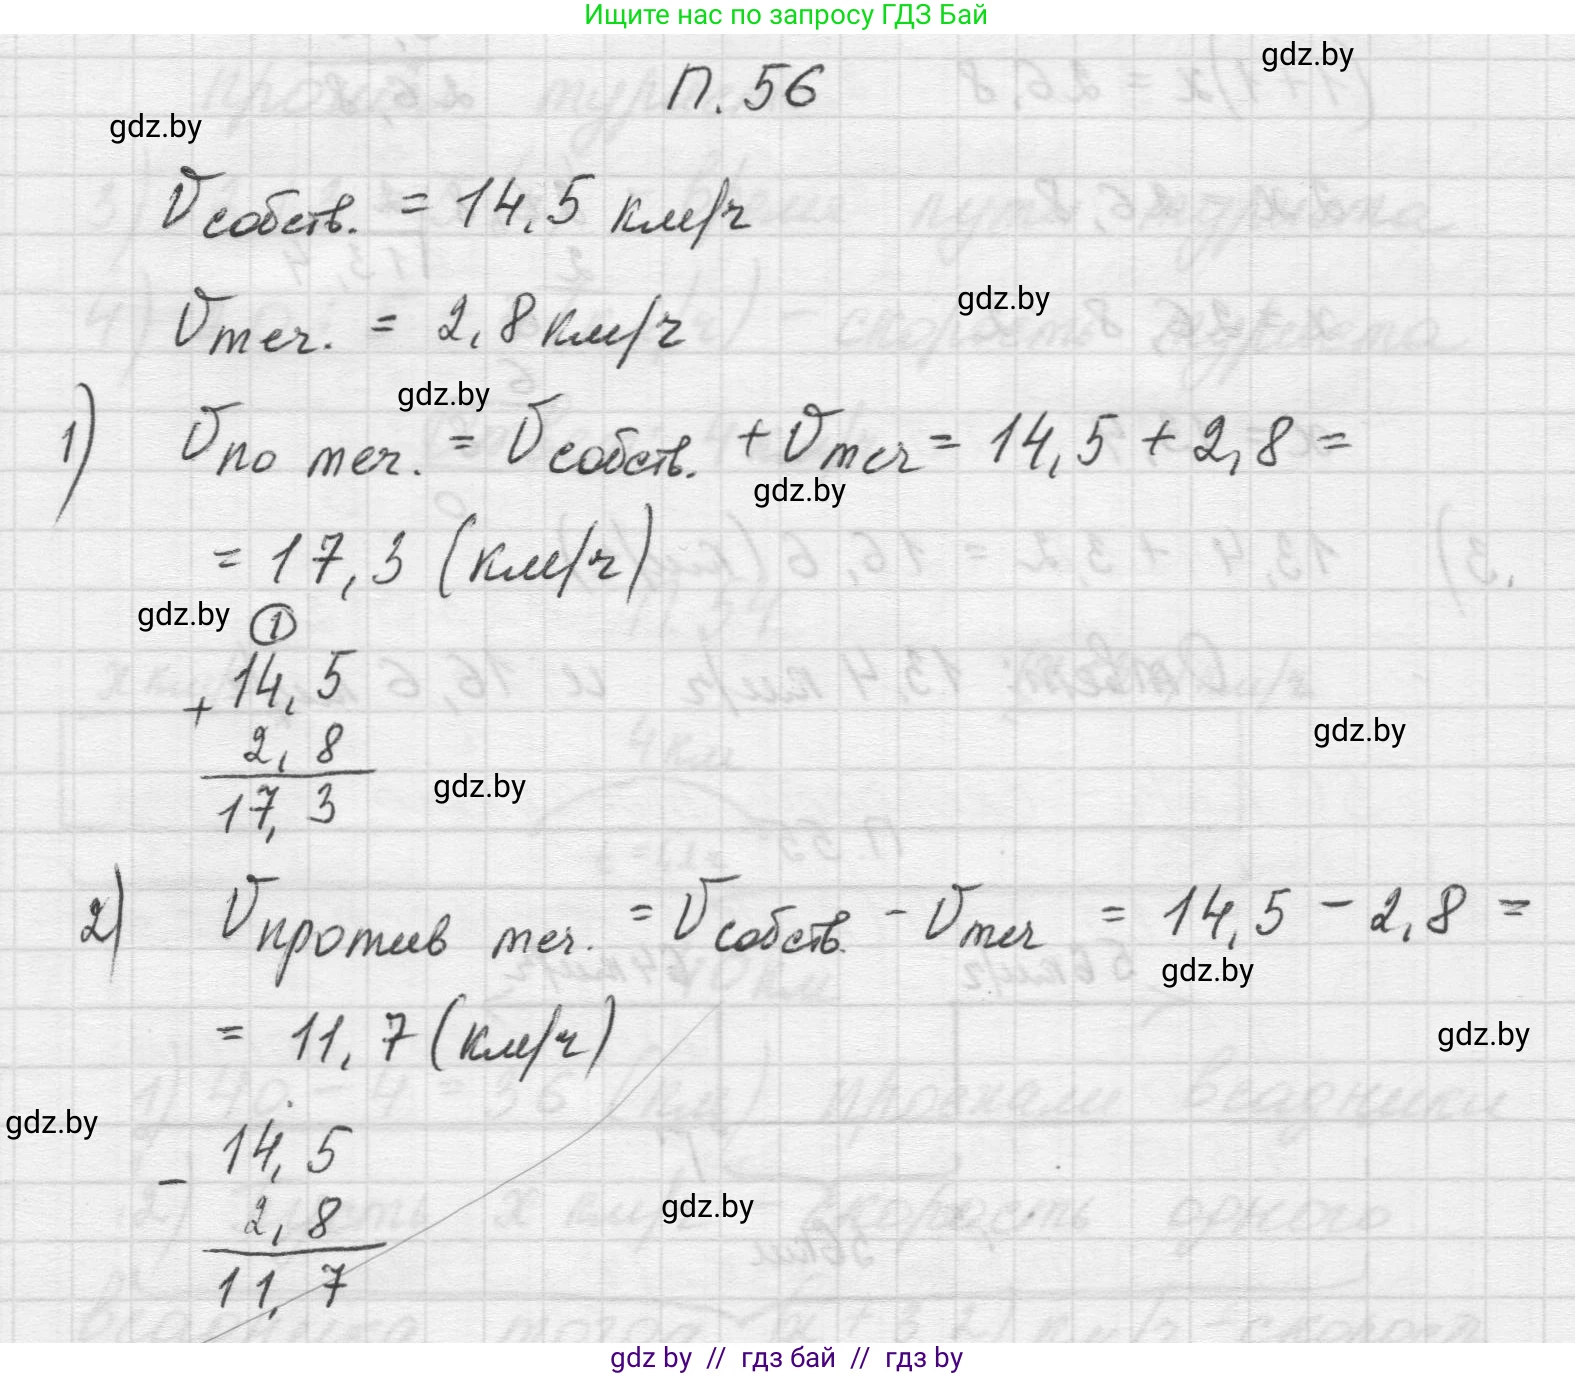 Ищите нас по запросу ГДЗ Бай
gdz.by
П. 56
gdz.by
Vсобств. = 14,5 км/ч
gdz.by
Vтеч. = 2,8 км/ч
gdz.by
1) Vпо теч. = Vсобств. + Vтеч = 14,5 + 2,8 =
gdz.by
= 17,3 (км/ч)
gdz.by
1
14,5
+
gdz.by
2,8
gdz.by
17,3
2) Vпротив теч. = Vсобств. - Vтеч = 14,5 - 2,8 =
gdz.by
= 11,7 (км/ч)
gdz.by
gdz.by
14,5
-
gdz.by
2,8
11,7
gdz by // гдз бай // гдз by